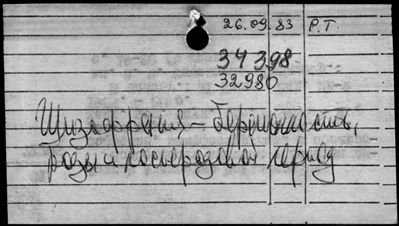 26.09.83 Р.Т.
34 398
32980
Шизофрения – беременность,
роды и послеродовой период